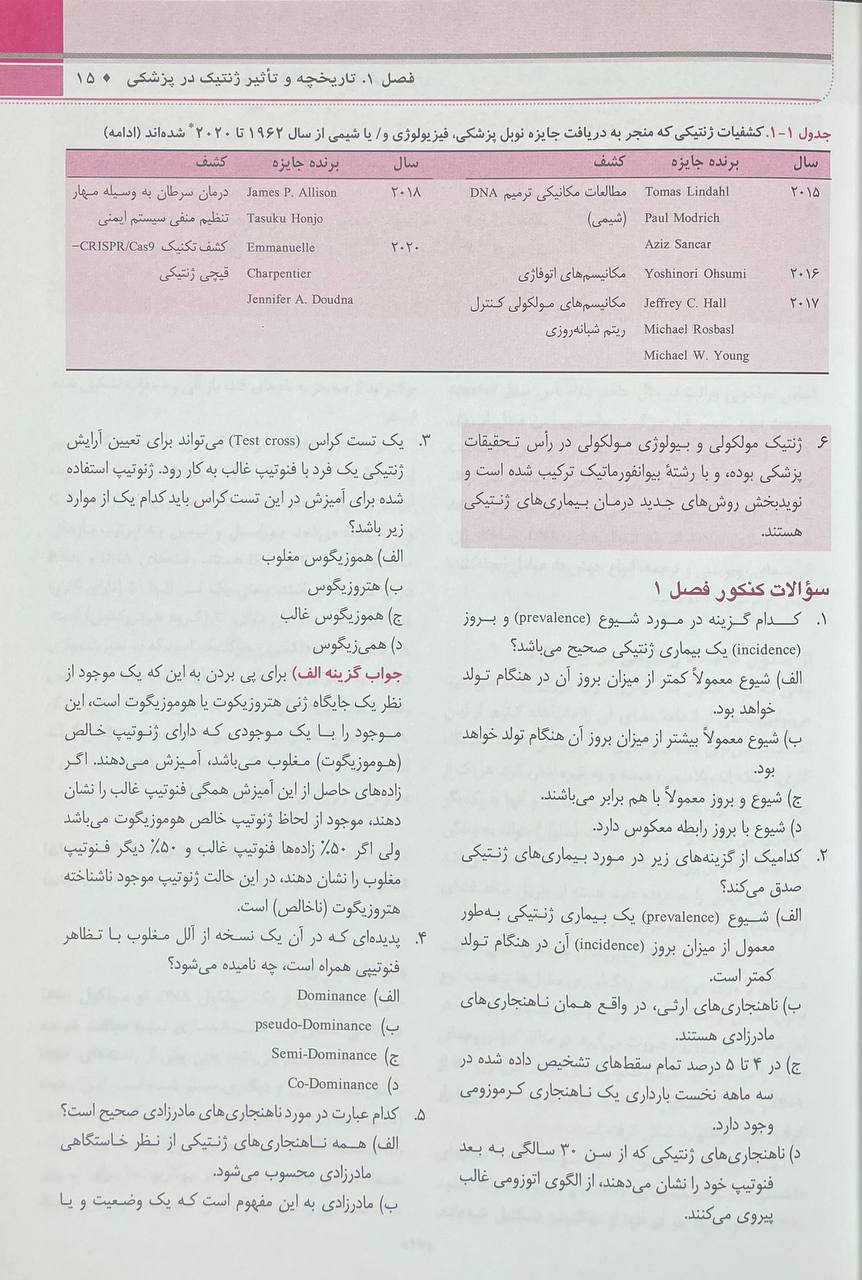 فصل ۱. تاریخچه و تأثیر ژنتیک در پزشکی ♦ ۱۵
جدول ۱-۱. کشفیات ژنتیکی که منجر به دریافت جایزه نوبل پزشکی، فیزیولوژی و/ یا شیمی از سال ۱۹۶۲ تا ۲۰۲۰* شده‌اند (ادامه)
سال برنده جایزه کشف سال برنده جایزه کشف
۲۰۱۵ Tomas Lindahl مطالعات مکانیکی ترمیم DNA
Paul Modrich (شیمی)
Aziz Sancar
۲۰۱۶ Yoshinori Ohsumi مکانیسم‌های اتوفاژی
۲۰۱۷ Jeffrey C. Hall مکانیزم‌های مولکولی کنترل
Michael Rosbasl ریتم شبانه‌روزی
Michael W. Young
۲۰۱۸ James P. Allison درمان سرطان به وسیله مهار
Tasuku Honjo تنظیم منفی سیستم ایمنی
۲۰۲۰ Emmanuelle کشف تکنیک CRISPR/Cas9–
Charpentier قیچی ژنتیکی
Jennifer A. Doudna
۶. ژنتیک مولکولی و بیولوژی مولکولی در رأس تحقیقات
پزشکی بوده، و با رشتهٔ بیوانفورماتیک ترکیب شده است و
نویدبخش روش‌های جدید درمان بیماری‌های ژنتیکی
هستند.
سؤالات کنکور فصل ۱
۱. کدام گزینه در مورد شیوع (prevalence) و بروز
(incidence) یک بیماری ژنتیکی صحیح می‌باشد؟
الف) شیوع معمولاً کمتر از میزان بروز آن در هنگام تولد
خواهد بود.
ب) شیوع معمولاً بیشتر از میزان بروز آن هنگام تولد خواهد
بود.
ج) شیوع و بروز معمولاً با هم برابر می‌باشند.
د) شیوع با بروز رابطه معکوس دارد.
۲. کدامیک از گزینه‌های زیر در مورد بیماری‌های ژنتیکی
صدق می‌کند؟
الف) شیوع (prevalence) یک بیماری ژنتیکی به‌طور
معمول از میزان بروز (incidence) آن در هنگام تولد
کمتر است.
ب) ناهنجاری‌های ارثی، در واقع همان ناهنجاری‌های
مادرزادی هستند.
ج) در ۴ تا ۵ درصد تمام سقط‌های تشخیص داده شده در
سه ماهه نخست بارداری یک ناهنجاری کرموزومی
وجود دارد.
د) ناهنجاری‌های ژنتیکی که از سن ۳۰ سالگی به بعد
فنوتیپ خود را نشان می‌دهند، از الگوی اتوزومی غالب
پیروی می‌کنند.
۳. یک تست کراس (Test cross) می‌تواند برای تعیین آرایش
ژنتیکی یک فرد با فنوتیپ غالب به کار رود. ژنوتیپ استفاده
شده برای آمیزش در این تست کراس باید کدام یک از موارد
زیر باشد؟
الف) هموزیگوس مغلوب
ب) هتروزیگوس
ج) هموزیگوس غالب
د) همی‌زیگوس
جواب گزینه الف) برای پی بردن به این که یک موجود از
نظر یک جایگاه ژنی هتروزیکوت یا هوموزیگوت است، این
موجود را با یک موجودی که دارای ژنوتیپ خالص
(هوموزیگوت) مغلوب می‌باشد، آمیزش می‌دهند. اگر
زاده‌های حاصل از این آمیزش همگی فنوتیپ غالب را نشان
دهند، موجود از لحاظ ژنوتیپ خالص هوموزیگوت می‌باشد
ولی اگر ۵۰٪ زاده‌ها فنوتیپ غالب و ۵۰٪ دیگر فنوتیپ
مغلوب را نشان دهند، در این حالت ژنوتیپ موجود ناشناخته
هتروزیگوت (ناخالص) است.
۴. پدیده‌ای که در آن یک نسخه از آلل مغلوب با تظاهر
فنوتیپی همراه است، چه نامیده می‌شود؟
الف) Dominance
ب) pseudo-Dominance
ج) Semi-Dominance
د) Co-Dominance
۵. کدام عبارت در مورد ناهنجاری‌های مادرزادی صحیح است؟
الف) همه ناهنجاری‌های ژنتیکی از نظر خاستگاهی
مادرزادی محسوب می‌شود.
ب) مادرزادی به این مفهوم است که یک وضعیت و یا